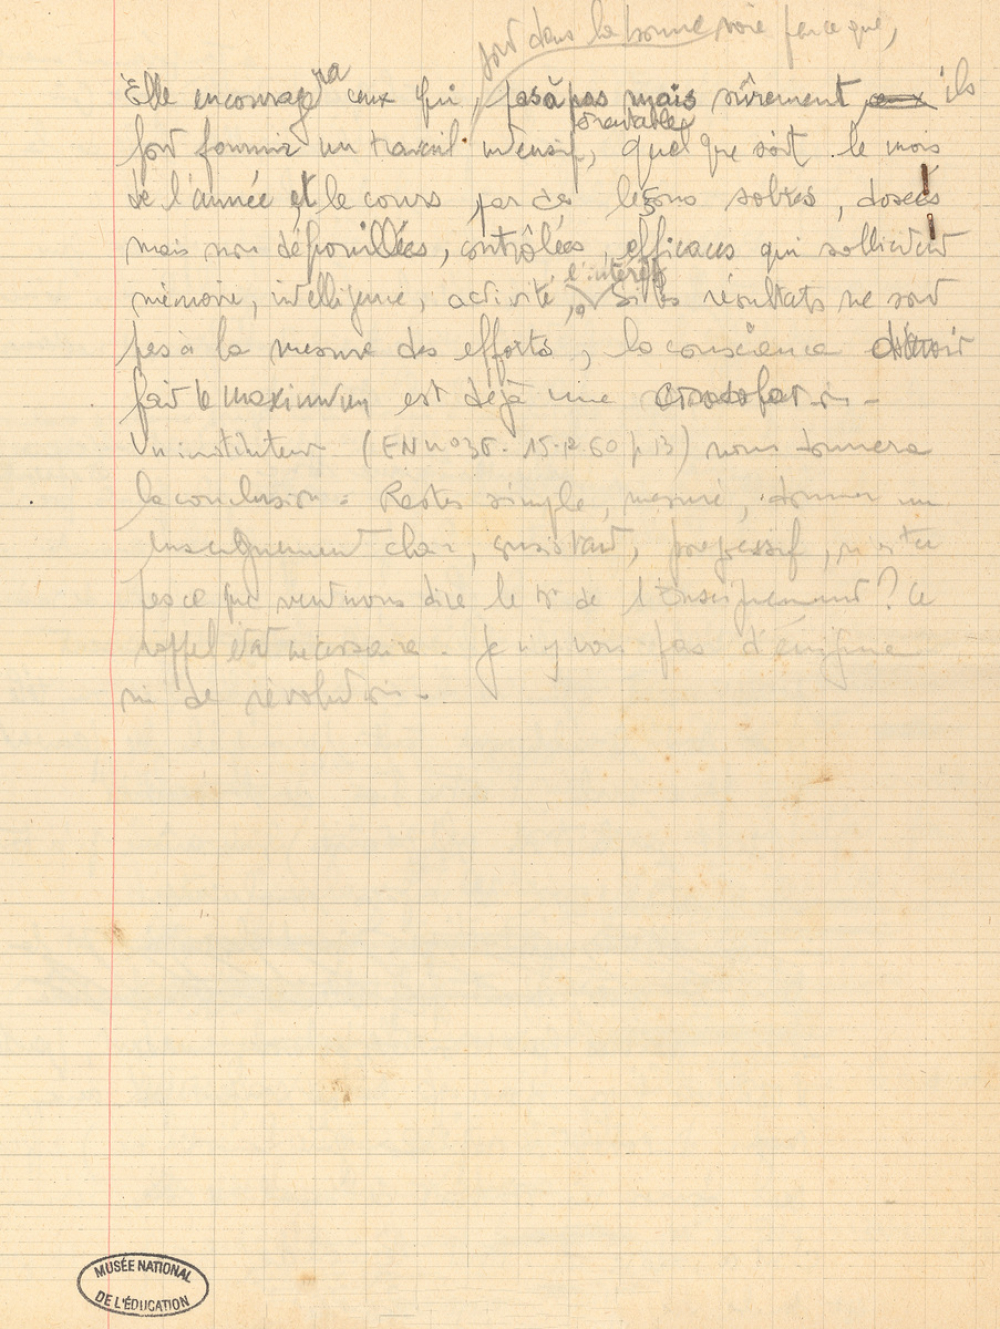 sont dans la bonne voie parce que,
Elle encouragera ceux qui, pas à pas mais sûrement, ils
font fournir un travail intensif, orientable, quel que soit le mois
de l'année et le cours par des leçons sobres, dosées
mais non dépouillées, contrôlées, efficaces qui sollicitent
l'intérêt
mémoire, intelligence, activité, Si les résultats ne sont
pas à la mesure des efforts, la conscience d'avoir
fait le maximum est déjà une satisfaction.
Un instituteur (EN n°36. 15-12-60 p 13) nous donnera
la conclusion : Rester simple, mesuré, donner un
enseignement clair, consistant, progressif, n'est-ce
pas ce que veut nous dire le de l'Enseignement ? Ce
rappel était nécessaire. Je n'y vois pas d'énigme
ni de révolution.
MUSÉE NATIONAL
DE L'ÉDUCATION